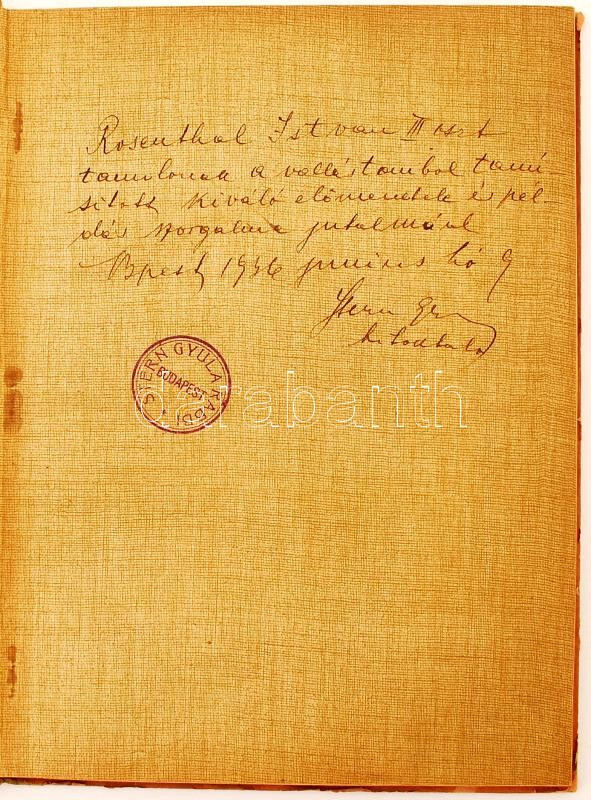 Rosenthal István III oszt
tanulónak a vallástanból tanú-
sított kiváló előmenetele és pél-
dás szorgalma jutalmául
Bpest 1936 junius hó 9
Stern Gy
hitoktató
STERN GYULA RABBI
BUDAPEST
darabanth